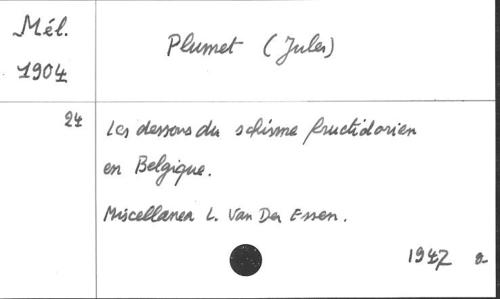 Mél.
1904
Plumet (Jules)
24
Les dessous du schisme fructidorien
en Belgique.
Miscellanea L. Van Der Essen.
1947